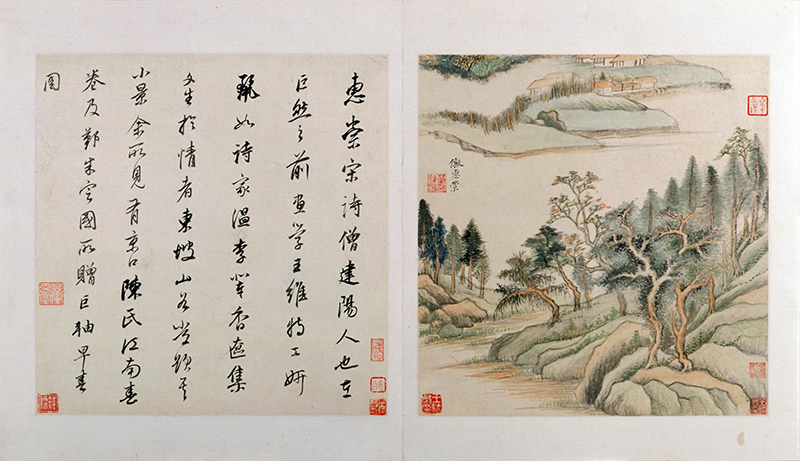 倣惠崇
惠崇宋詩僧建陽人也在
巨然之前畫學王維特工妍
如詩家溫李輩香奩集
文生於情者東坡山谷嘗題其
小景余所見有京口陳氏江南春
卷及朱定國所贈巨軸早春
圖